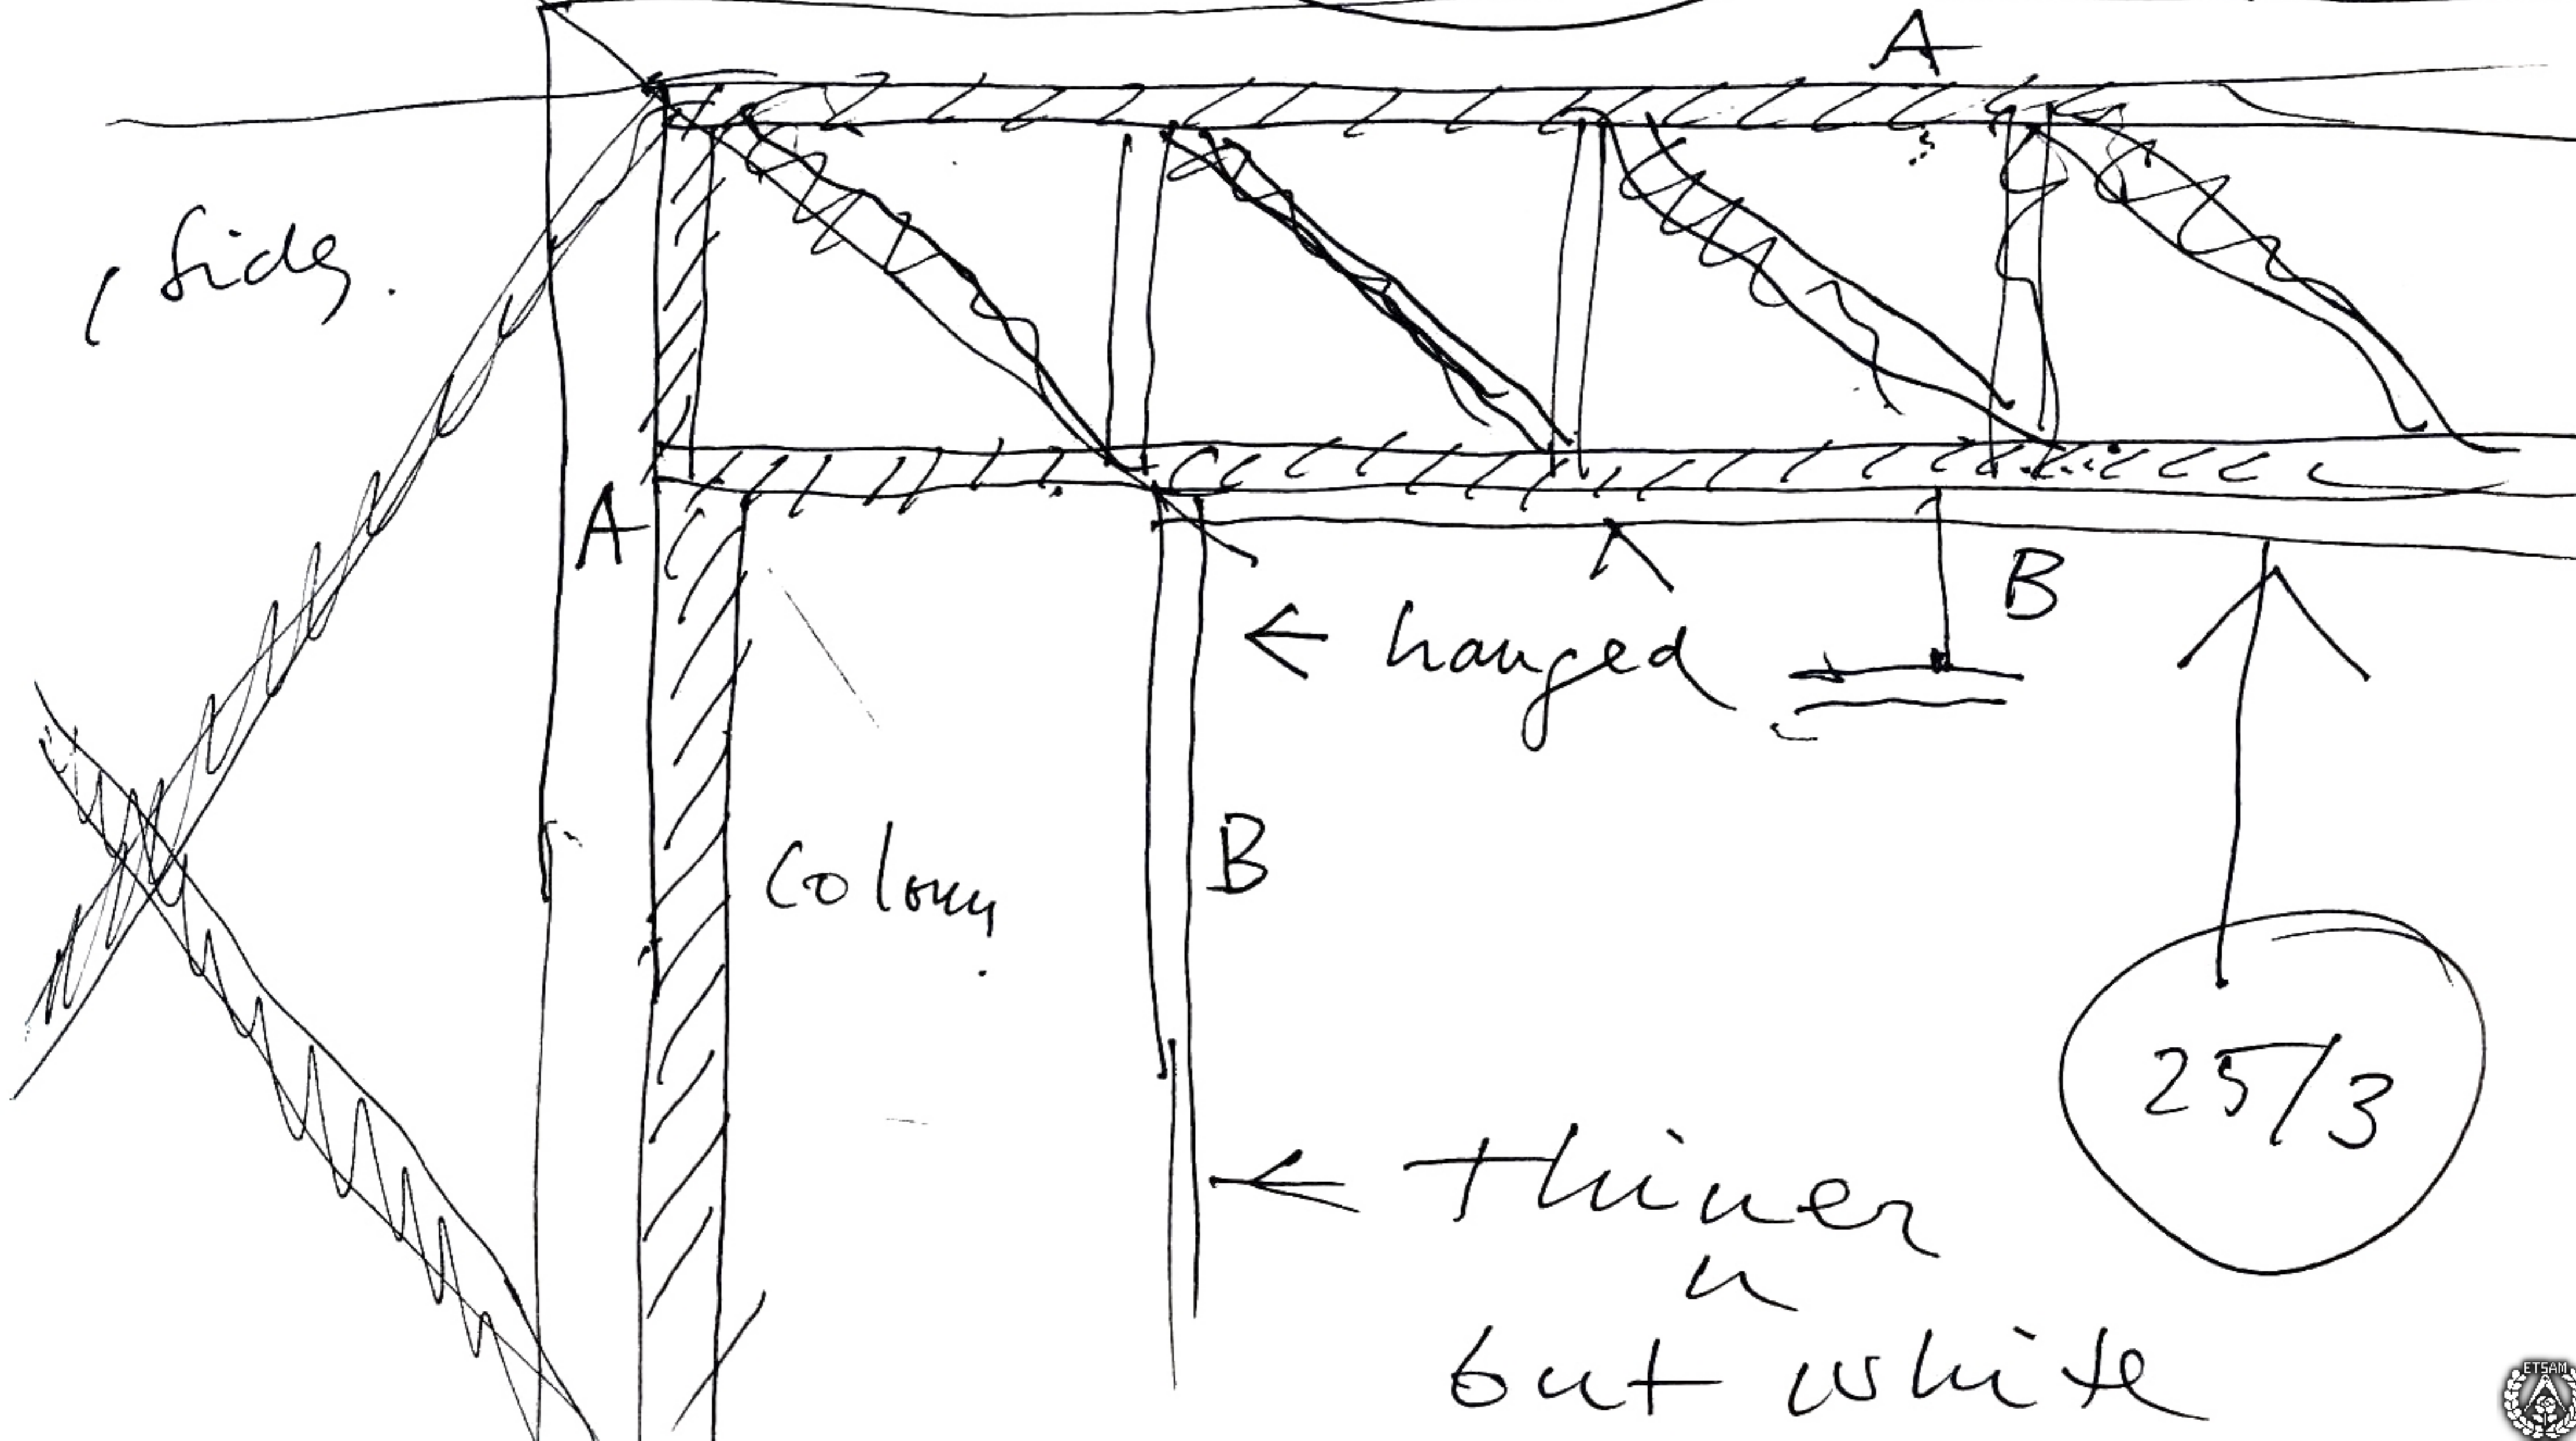 A
side
A
B
← hanged
Colomn
B
25/3
← thiner
n
but white
ETSAM